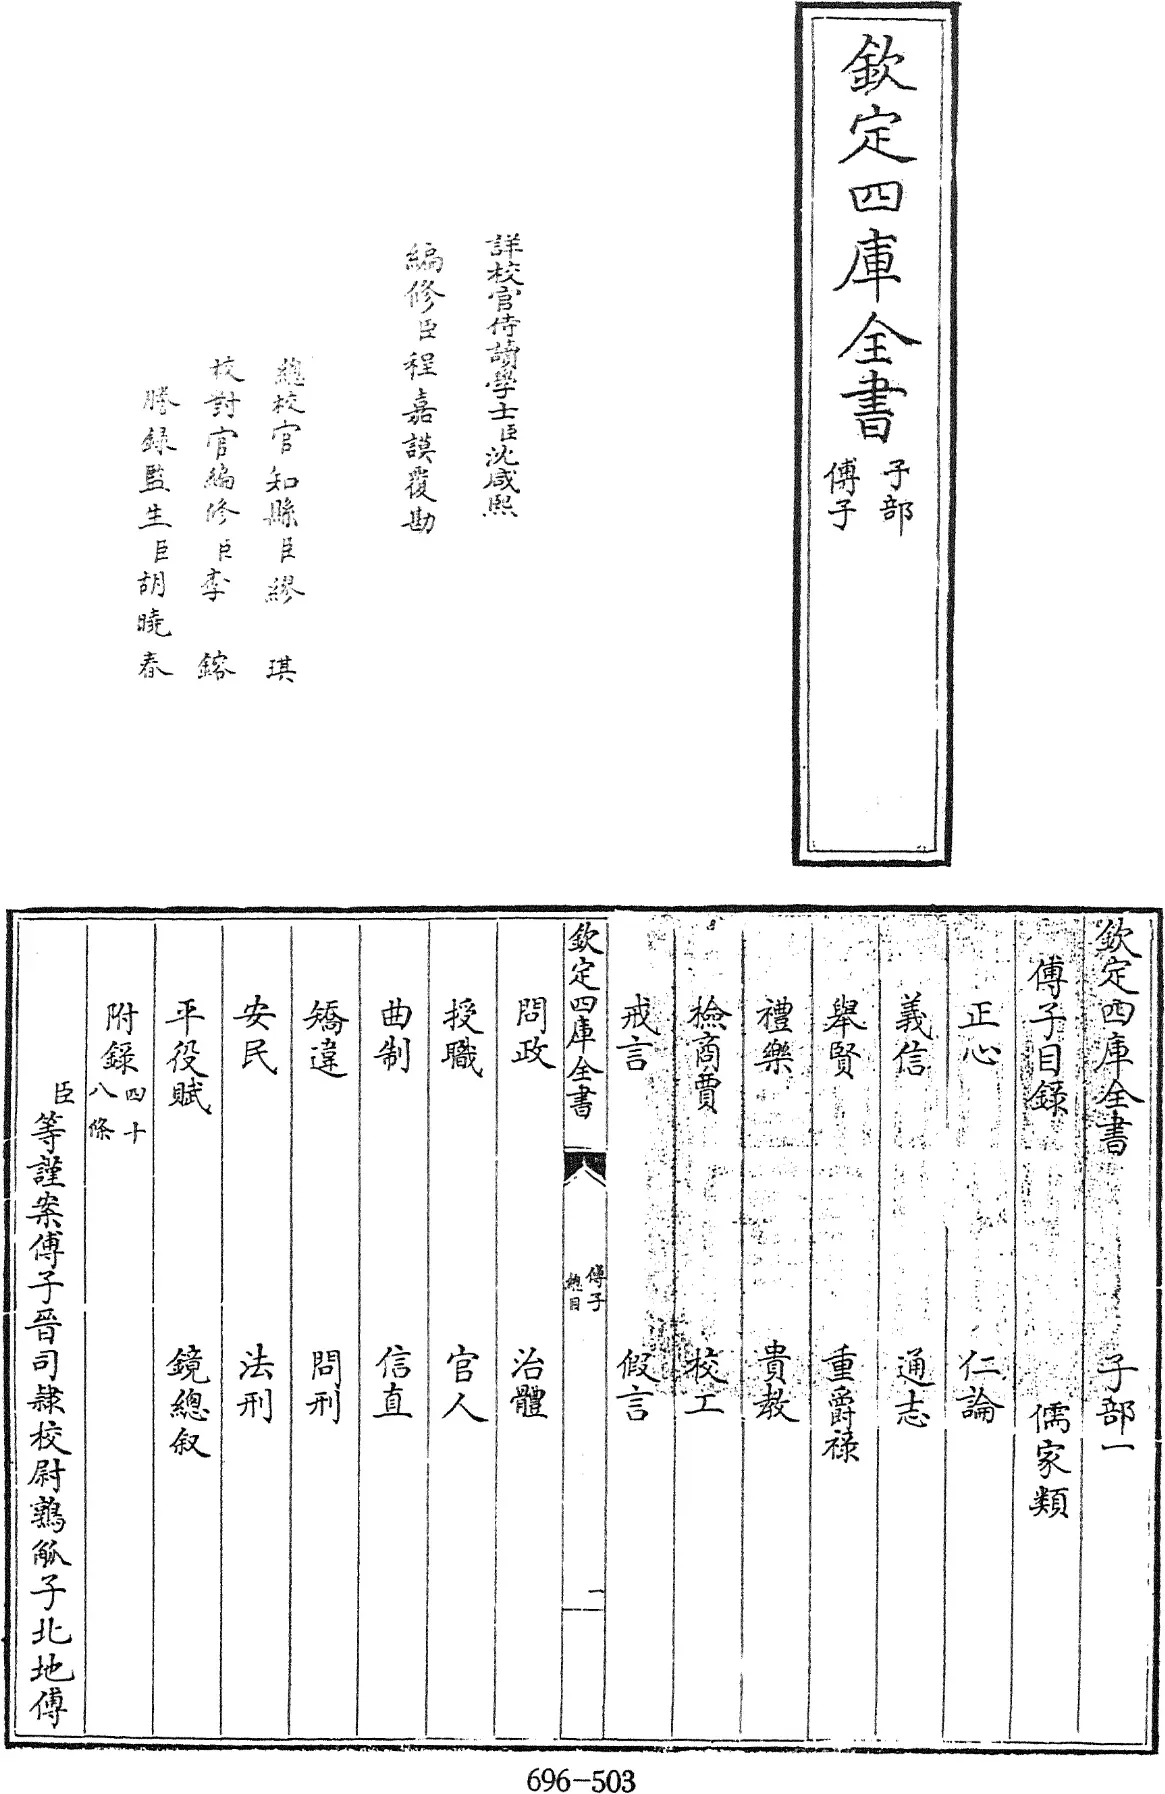 欽定四庫全書
子部
傅子
詳校官侍讀學士臣沈咸熙
編修臣程嘉謨覆勘
總校官知縣臣繆琪
校對官編修臣李鎔
謄錄監生臣胡曉春
欽定四庫全書 子部一
傅子目録 儒家類
正心 仁論
義信 通志
舉賢 重爵祿
禮樂 貴教
檢商賈 校工
戒言 假言
欽定四庫全書
傅子
總目
一
問政 治體
授職 官人
曲制 信直
矯違 問刑
安民 法刑
平役賦 鏡總叙
附錄四十八條
臣等謹案傅子晉司隸校尉鶉觚子北地傅
696-503